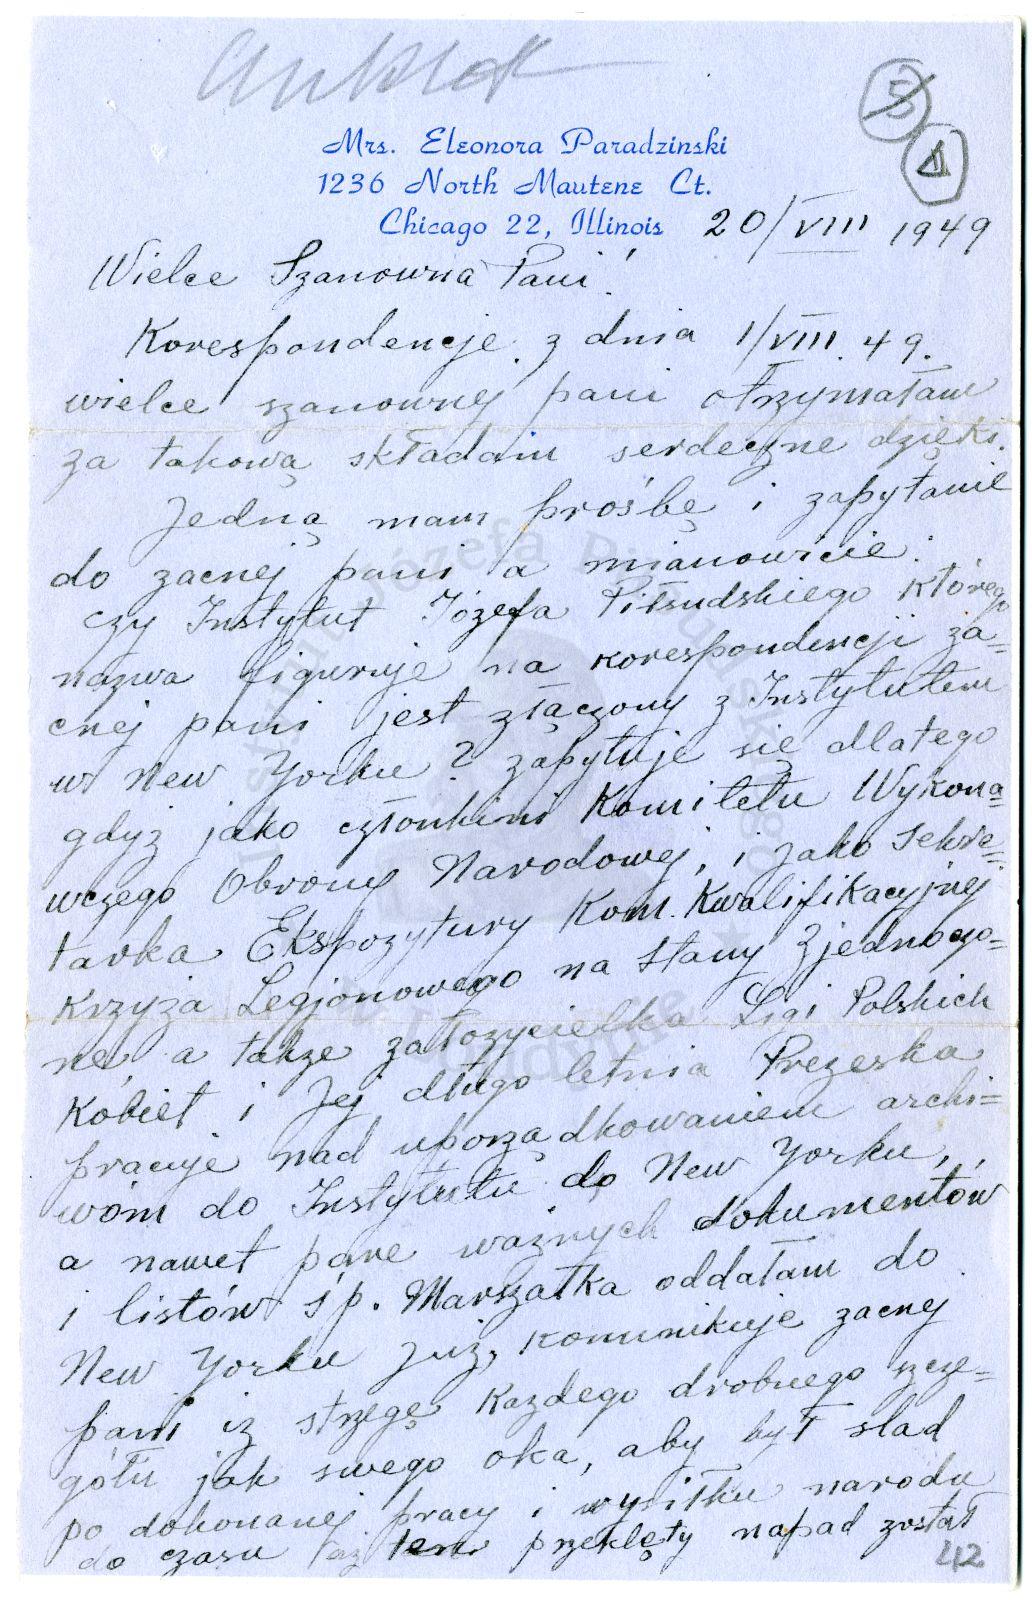 5
1
Mrs. Eleonora Paradzinski
1236 North Mautene Ct.
Chicago 22, Illinois 20/VIII 1949
Wielce Szanowna Pani!
Korespondencje z dnia 1/VIII. 49.
wielce szanownej pani otrzymałam
za takową składam serdeczne dzięki.
Jedną mam prośbę i zapytanie
do zacnej pani a mianowicie:
czy Instytut Józefa Piłsudskiego którego
nazwa figuruje na korespondencji za=
cnej pani jest złączony z Instytutem
w New Yorku? zapytuje się dlatego
gdyż jako członkini Komitetu Wykona=
wczego Obrony Narodowej, i jako sekre=
tarka Ekspozytury Kom. Kwalifikacyjnej
Krzyża Legjonowego na Stany Zjednoczo=
ne, a także założycielka Ligi Polskich
Kobiet i Jej długo letnia Prezeska
pracuje nad uporządkowaniem archi=
wóm do Instytutu do New Yorku,
a nawet pare ważnych dokumentów
i listów ś p. Marszałka oddałam do
New Yorku już, komunikuje zacnej
pani iż strzegę każdego drobnego szcze=
gółu jak swego oka, aby był slad
po dokonanej pracy i wysiłku narodu
do czasu aż ten przeklęty napad został
42
Instytut Józefa Piłsudskiego
w Londynie